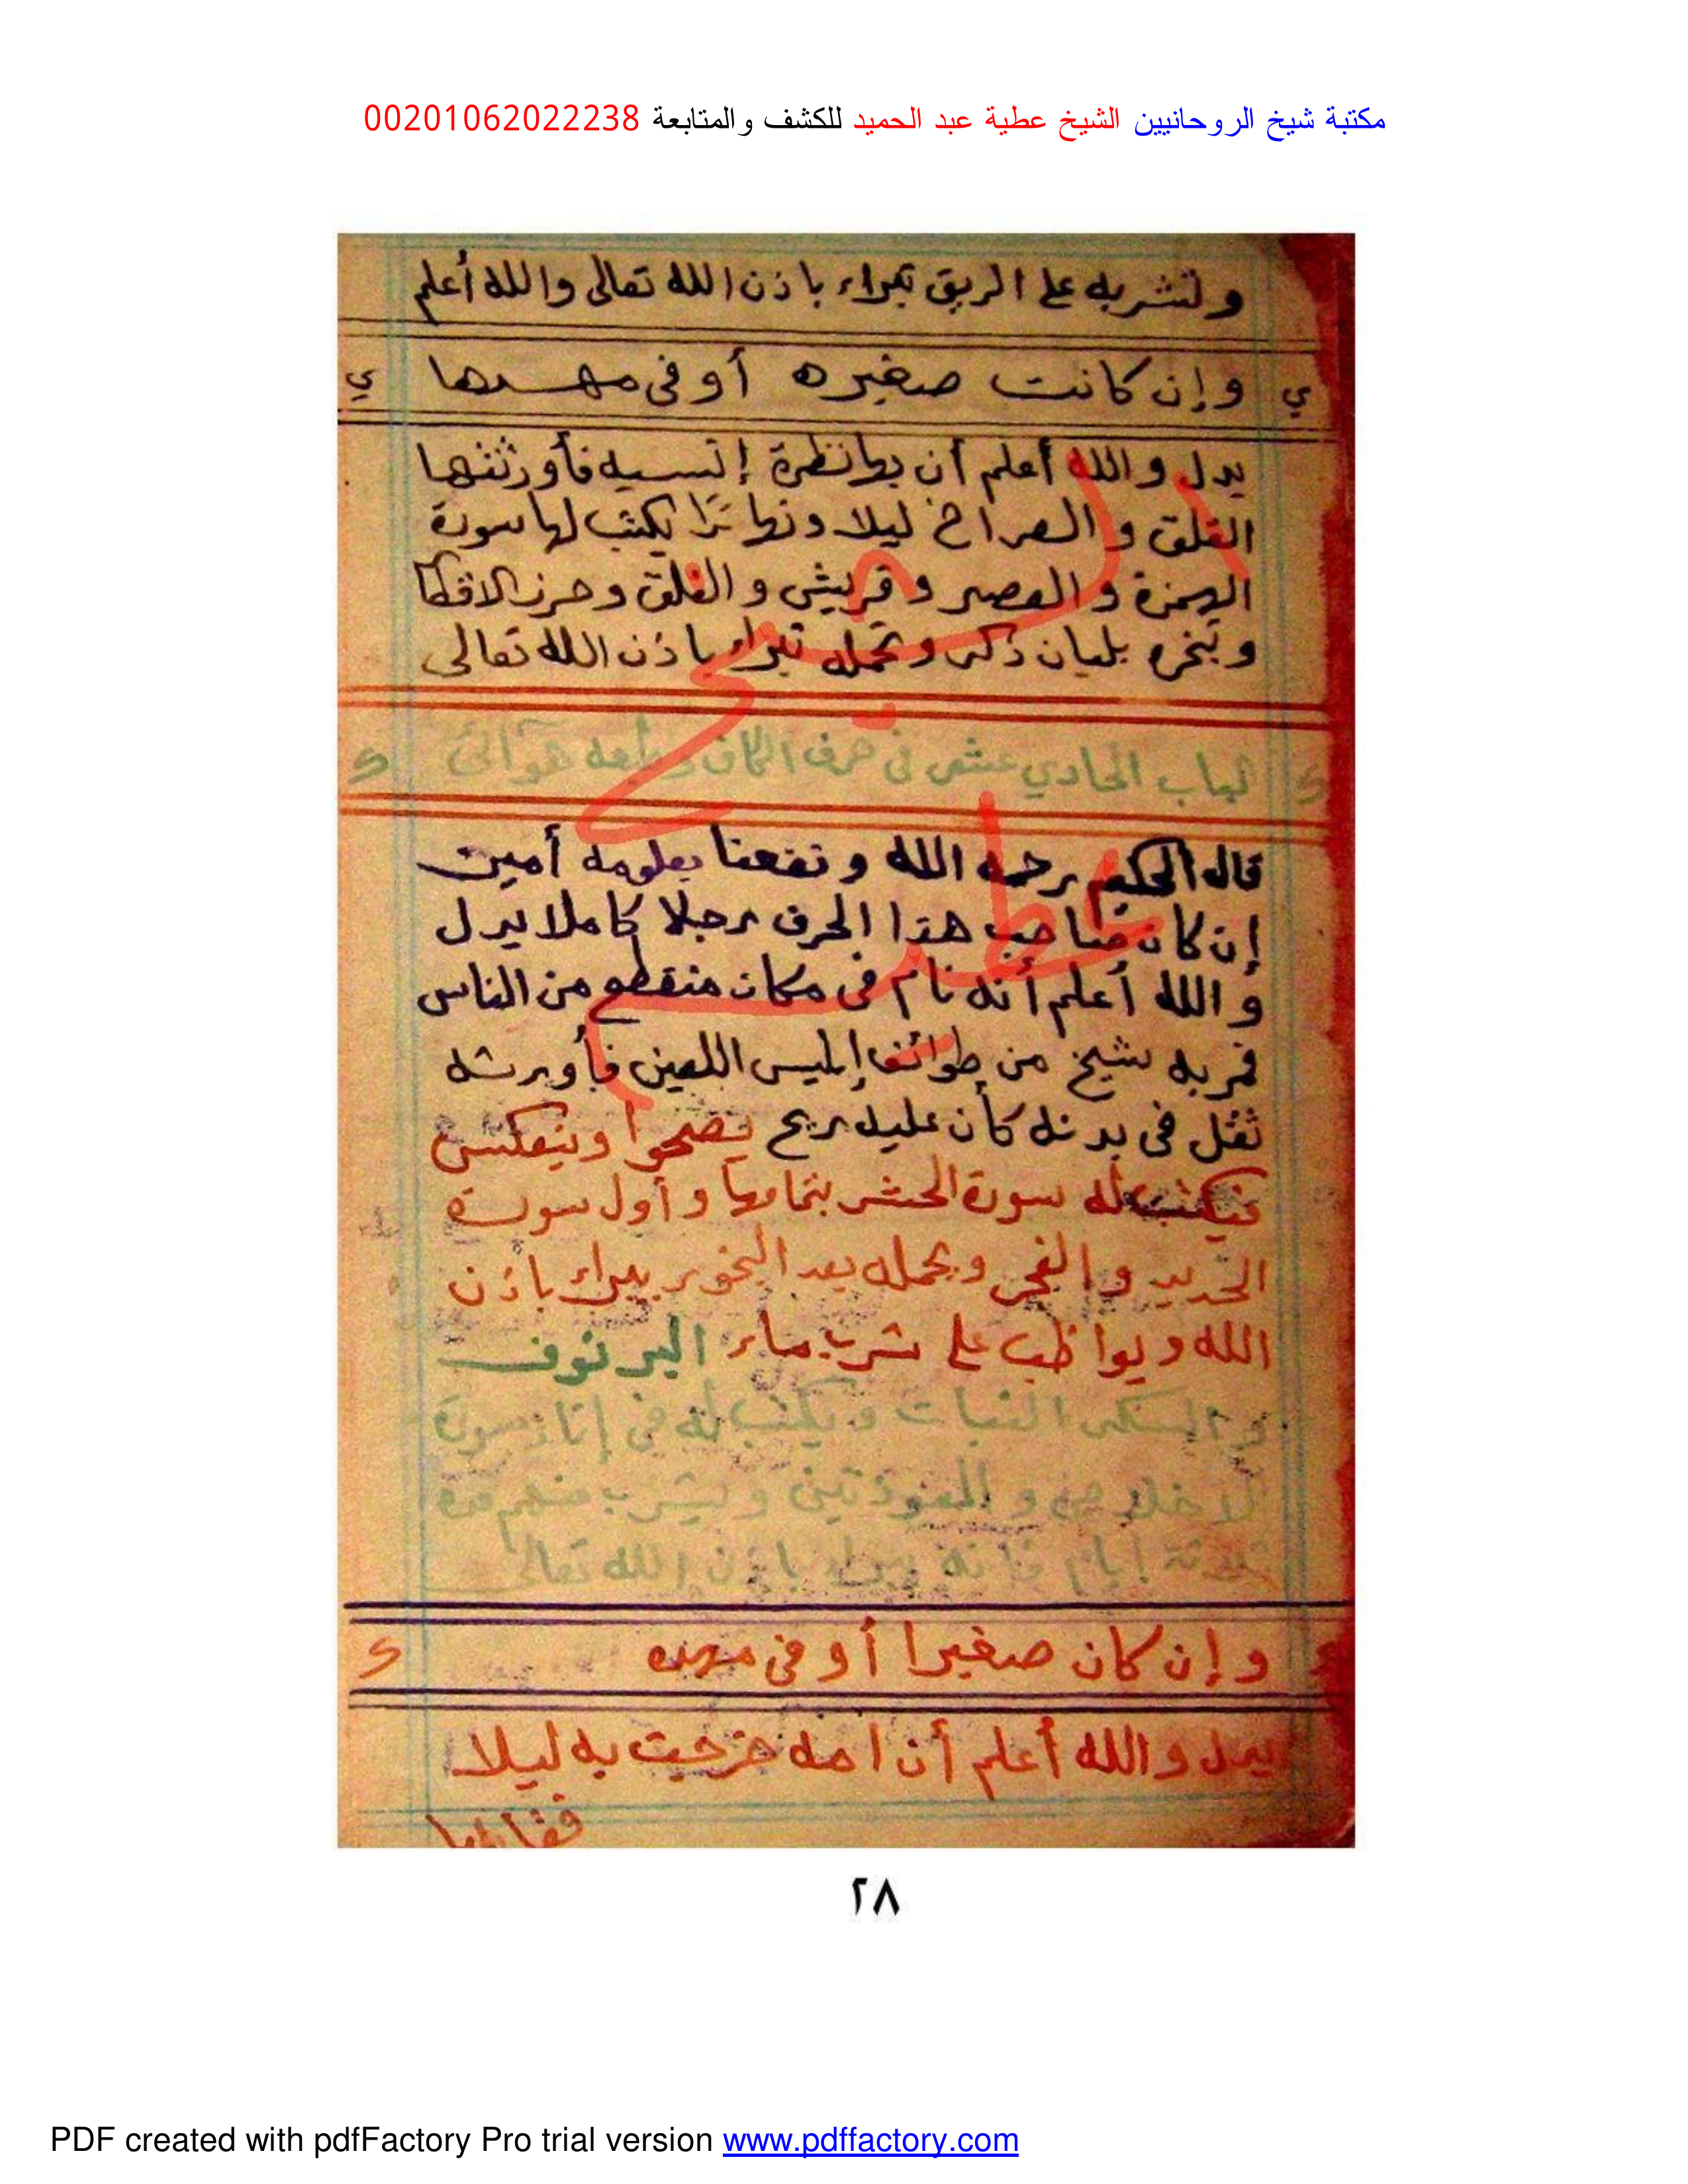 مكتبة شيخ الروحانيين الشيخ عطية عبد الحميد للكشف والمتابعة 00201062022238
ولتشربه على الريق تبراء باذن الله تعالى والله أعلم
ي وإن كانت صغيره أو فى مهدها ي
يدل والله أعلم أن بها نظرة إنسيه فأورثتها
القلق والصراخ ليلا ونهارا يكتب لها سورة
الهمزة والعصر وقريش والفلق وحرز الاقطا
وتبخره بلبان ذكر وتحمله تبراء باذن الله تعالى
ك الباب الحادي عشر فى حرف الكاف وطبعه هوآئى ك
قال الحكيم رحمه الله ونفعنا بعلومه أمين
إن كان صاحب هذا الحرف رجلا كاملا يدل
والله أعلم أنه نام فى مكان منقطع من الناس
فمر به شيخ من طوائف إبليس اللعين فأورثه
ثقل فى بدنه كأن عليه ريح يضحوا وينعكس
فيكتب له سورة الحشر بتمامها وأول سورة
الحديد والفجر ويحمله بعد البخور يبراء باذن
الله ويواظب على شرب ماء البرنوف
والسكر النبات ويكتب له فى إناء سورة
الاخلاص والمعوذتين ويشرب منهم مدة
ثلاثة أيام فانه يبراء باذن الله تعالى
وإن كان صغيرا أو فى مهده ك
يدل والله أعلم أن امه خرجت به ليلا
الشيخ
عطية
٢٨
PDF created with pdfFactory Pro trial version www.pdffactory.com